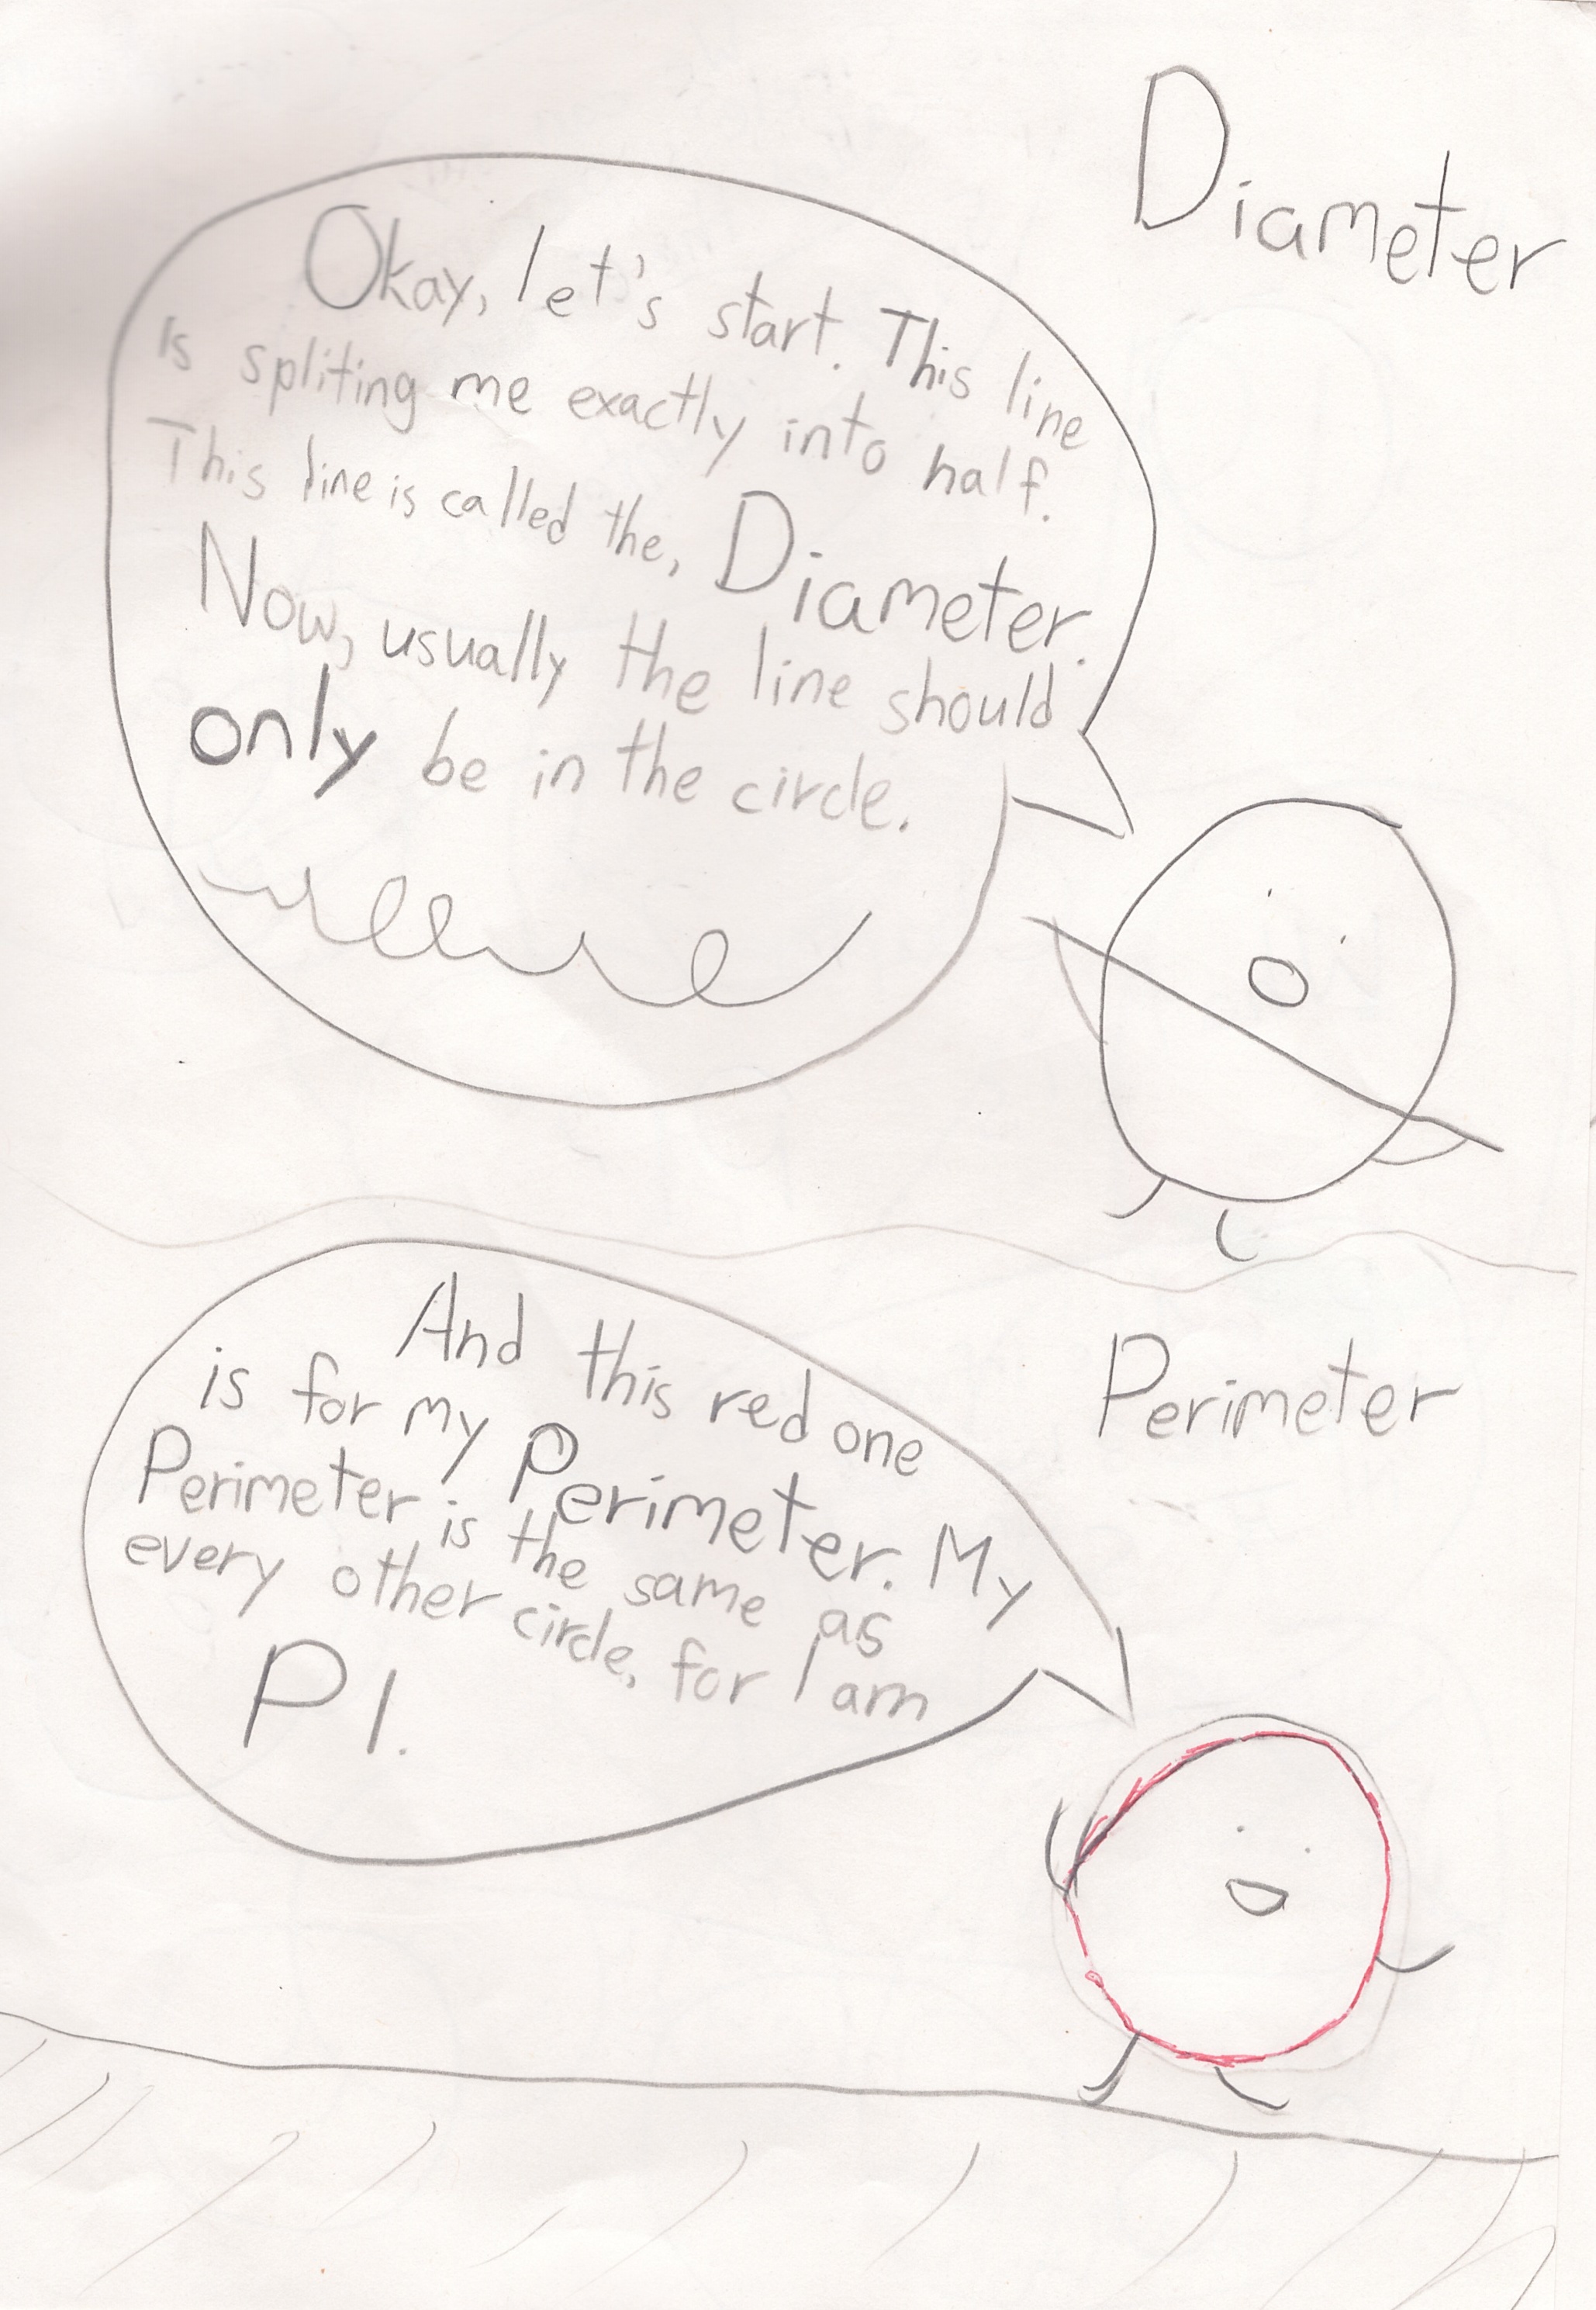 Diameter
Okay, let's start. This line
is spliting me exactly into half.
This line is called the, Diameter.
Now, usually the line should
only be in the circle.
Perimeter
And this red one
is for my Perimeter. My
Perimeter is the same as
every other circle, for I am
PI.